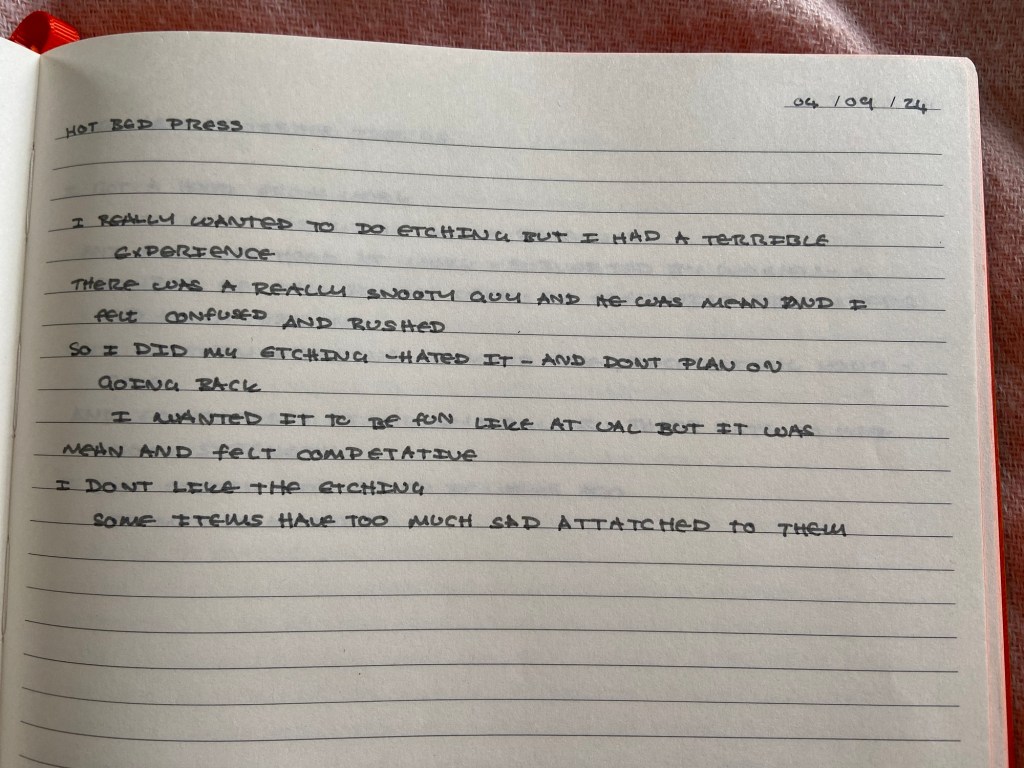 04 /09 /24
HOT BED PRESS
I REALLY WANTED TO DO ETCHING BUT I HAD A TERRIBLE
EXPERIENCE
THERE WAS A REALLY SNOOTY GUY AND HE WAS MEAN AND I
FELT CONFUSED AND RUSHED
SO I DID MY ETCHING - HATED IT - AND DONT PLAN ON
GOING BACK
I WANTED IT TO BE FUN LIKE AT UAL BUT IT WAS
MEAN AND FELT COMPETATIVE
I DONT LIKE THE ETCHING
SOME ITEMS HAVE TOO MUCH SAD ATTATCHED TO THEM